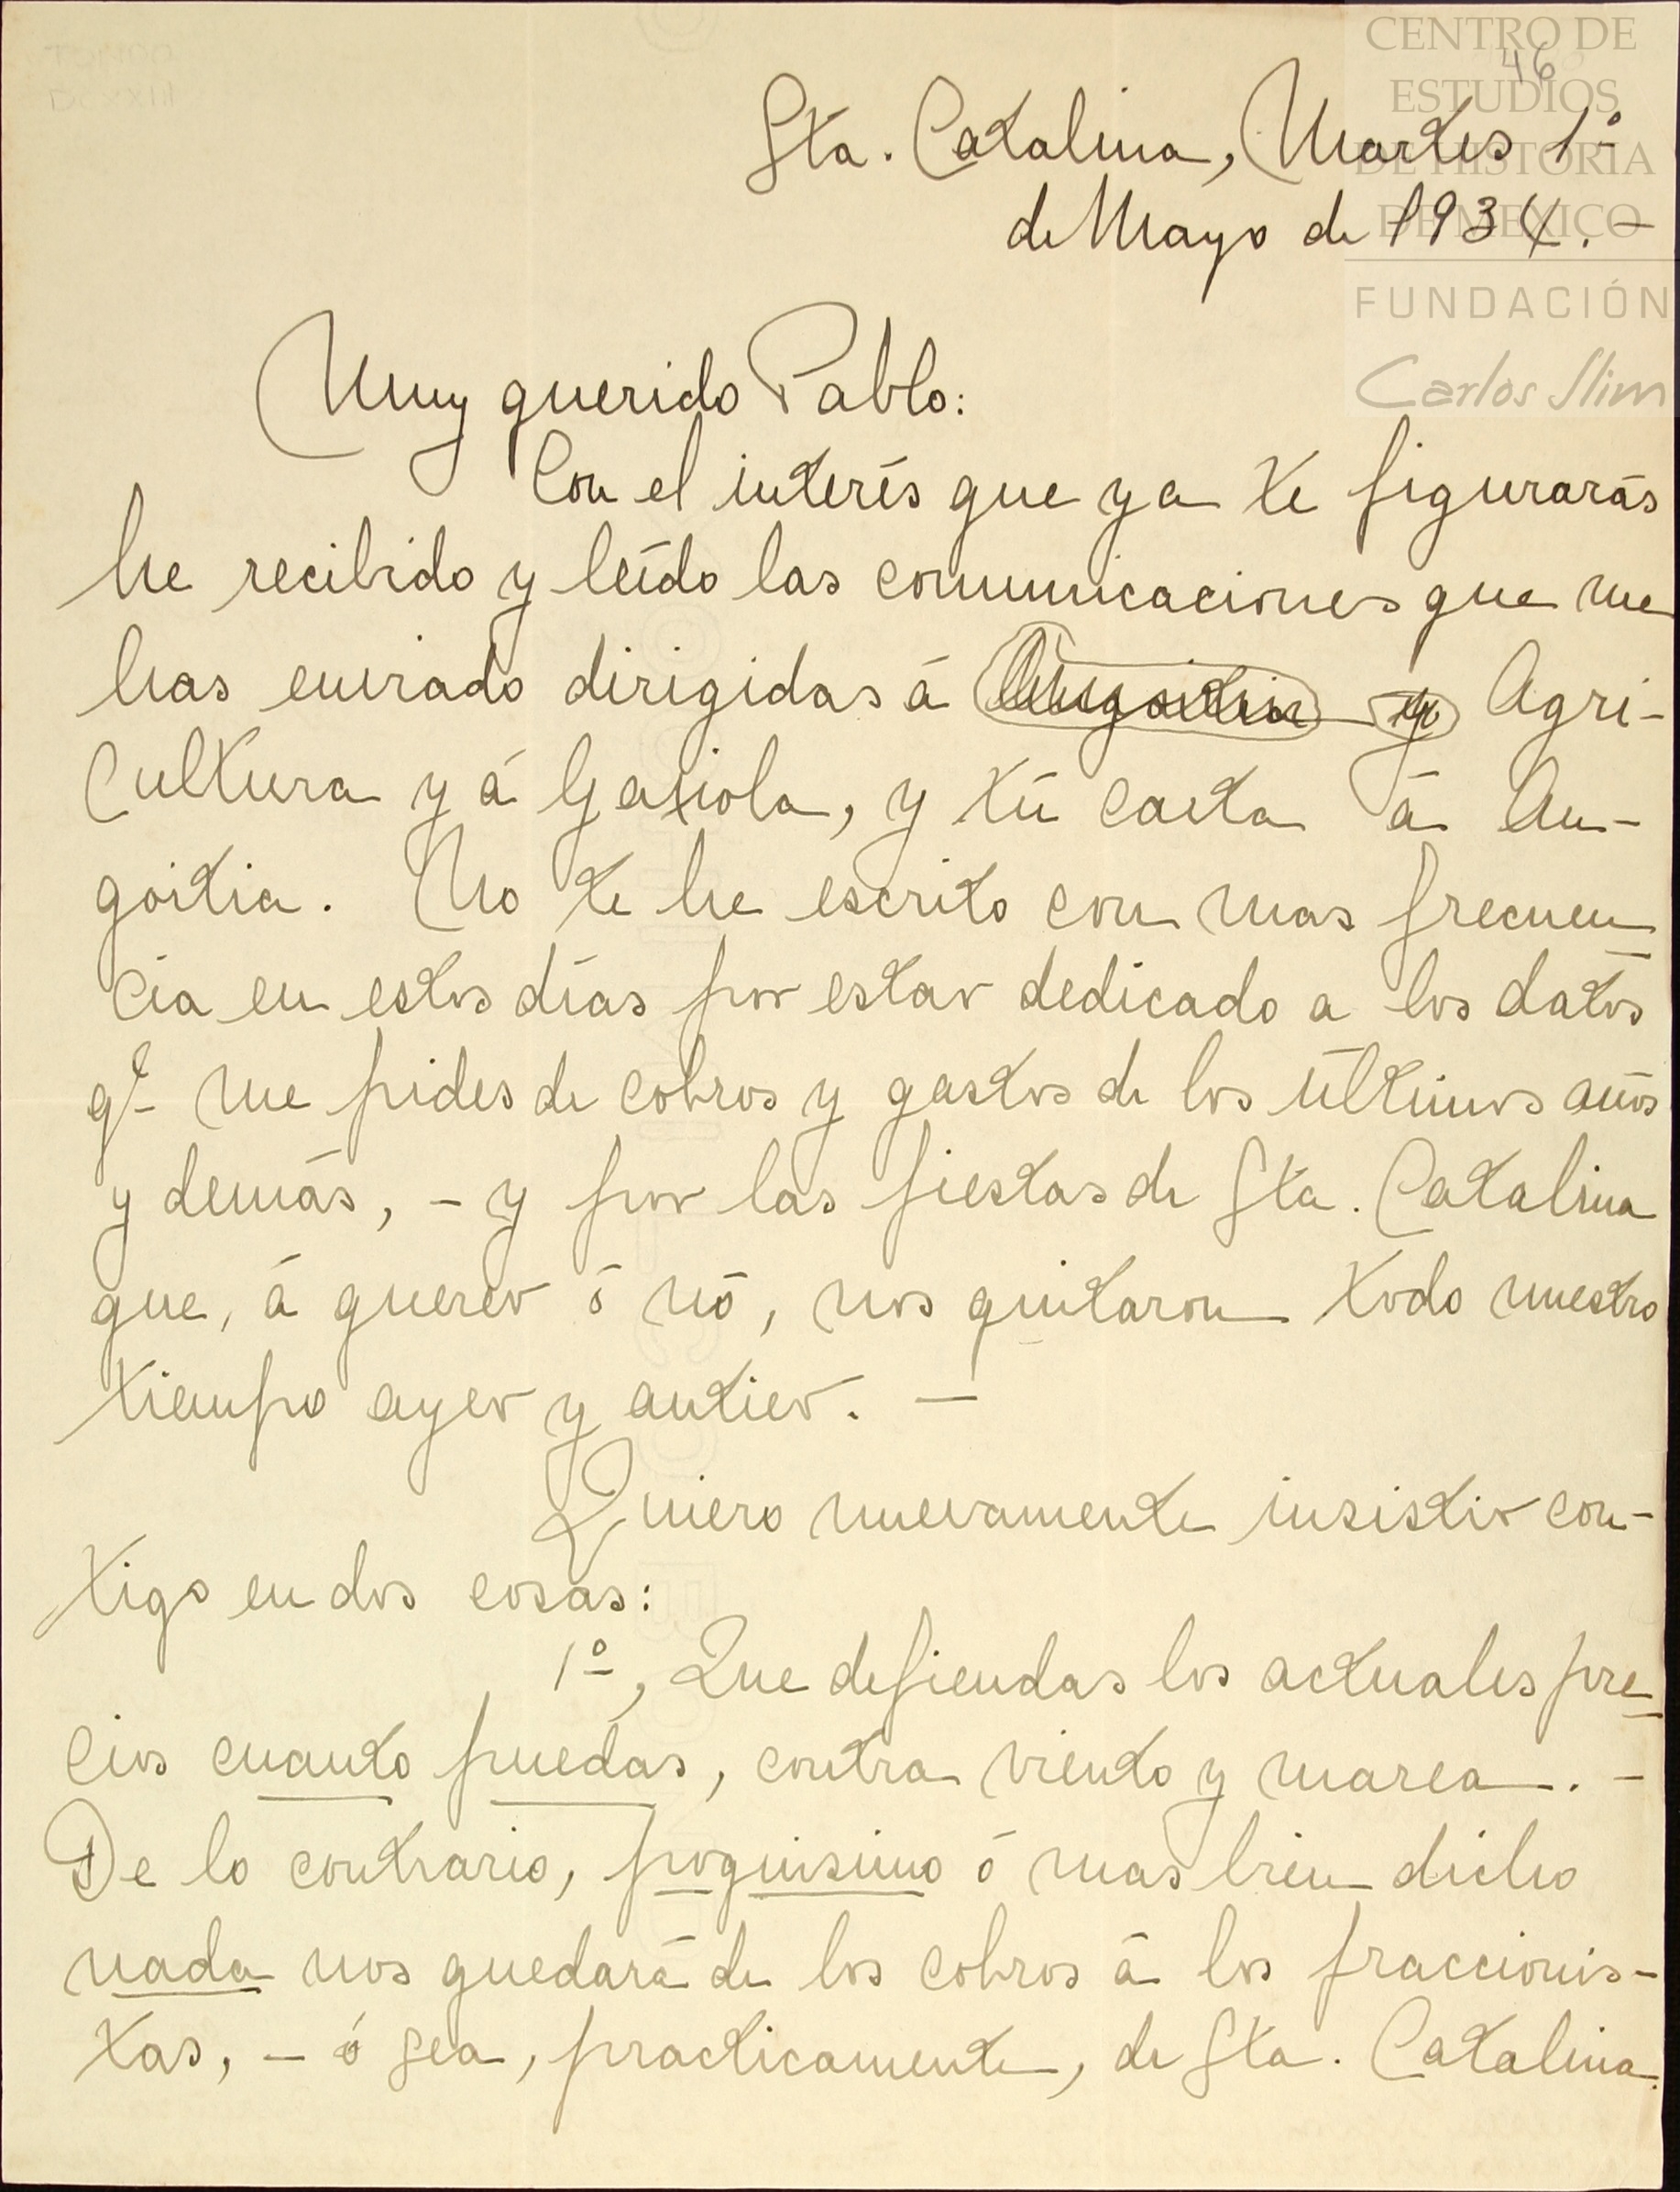 CENTRO DE
ESTUDIOS
DE HISTORIA
DE MEXICO
FUNDACIÓN
Carlos Slim
46
Sta. Catalina, Martes 1º
de Mayo de 1934. —
Muy querido Pablo:
Con el interés que ya te figurarás
he recibido y leído las comunicaciones que me
has enviado dirigidas á Angoitia y Agri-
cultura y á Gaxiola, y tú carta á An-
goitia. No te he escrito con mas frecuen
cia en estos días por estar dedicado a los datos
qe me pides de cobros y gastos de los últimos años
y demás, — y por las fiestas de Sta. Catalina
que, á querer ó nó, nos quitaron todo nuestro
tiempo ayer y antier. —
Quiero nuevamente insistir con-
tigo en dos cosas:
1º, Que defiendas los actuales pre
cios cuanto puedas, contra viento y marea. —
De lo contrario, poquisimo ó mas bien dicho
nada nos quedará de los cobros á los fraccionis-
tas, — ó sea, practicamente, de Sta. Catalina.